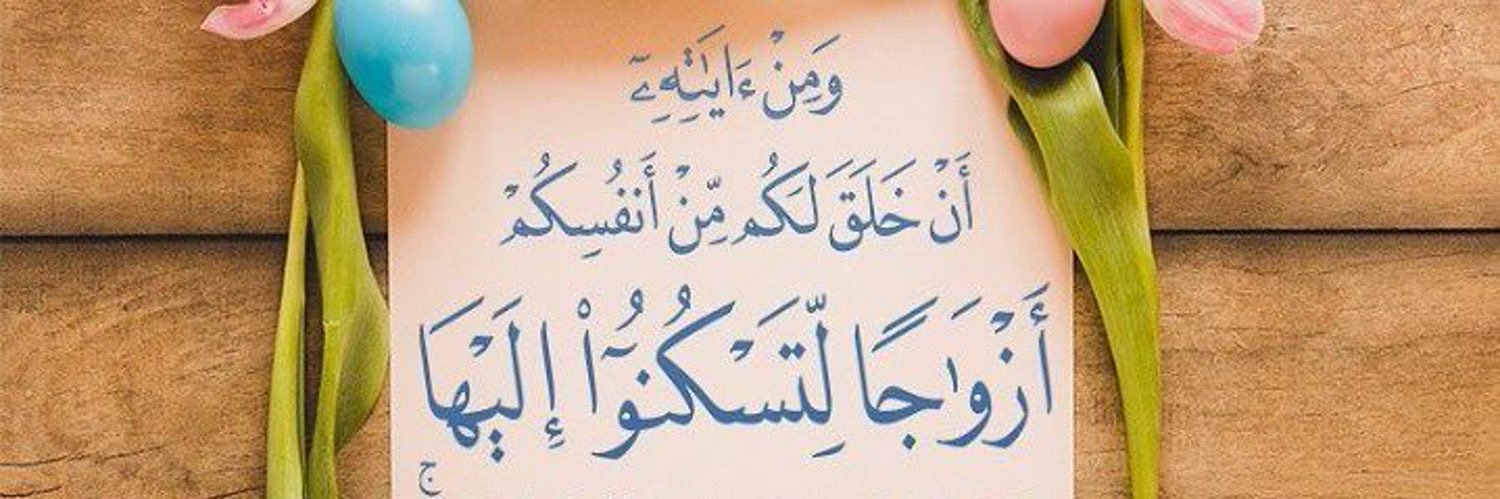 وَمِنْ ءَايَٰتِهِۦٓ
أَنْ خَلَقَ لَكُم مِّنْ أَنفُسِكُمْ
أَزْوَٰجًا لِّتَسْكُنُوٓا۟ إِلَيْهَا
ج